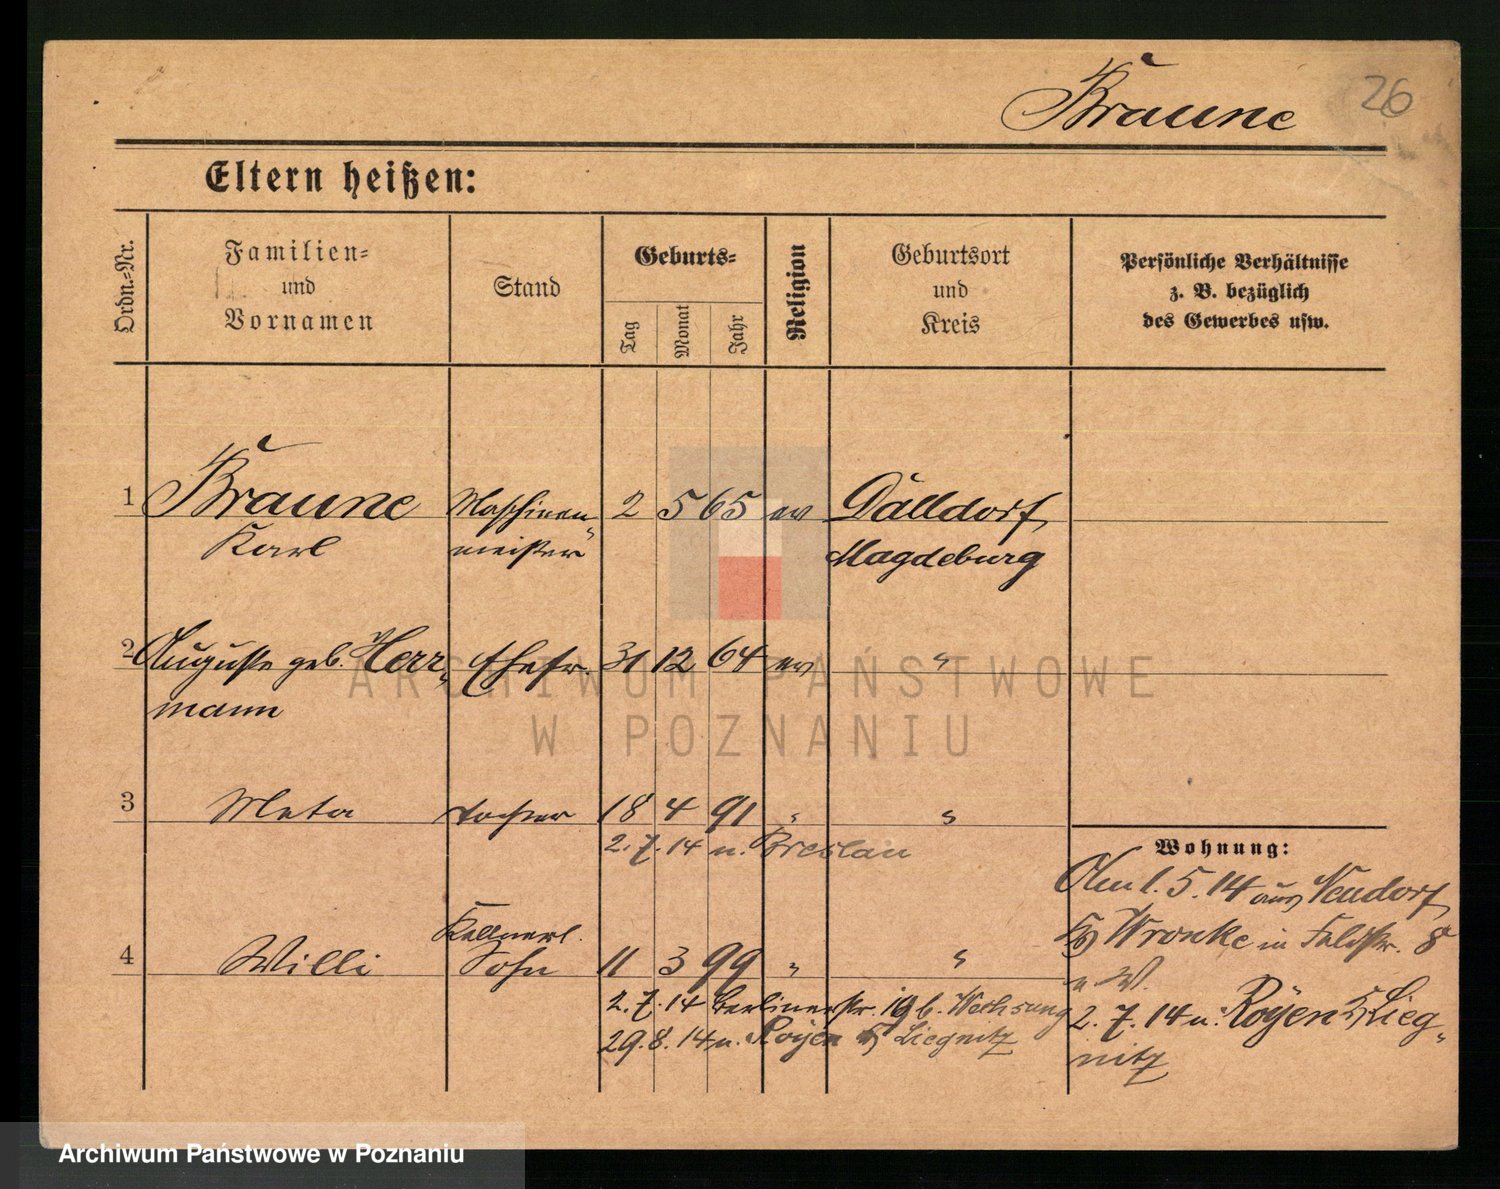 Braune
26
Eltern heißen:
Ordn.-Nr.
Familien-
und
Vornamen
Stand
Geburts-
Tag
Monat
Jahr
Religion
Geburtsort
und
Kreis
Persönliche Verhältnisse
z. B. bezüglich
des Gewerbes usw.
1 Braune Maschinen- 2 5 65 ev Dalldorf
Karl meister Magdeburg
2 Auguste geb. Herr- Ehefr. 31 12 64 ev "
mann
3 Meta Tochter 18 4 91 " "
2. 7. 14 n. Breslau
Wohnung:
Am 1. 5. 14 aus Neudorf
Kr Wronke in Feldstr. 8
b. W.
2. 7. 14 n. Royen Kr Lieg-
nitz
Kellnerl.
4 Willi Sohn 11 3 99 " "
2. 7. 14 Berlinerstr. 19 b.
29. 8. 14 n. Royen Kr Liegnitz
ARCHIWUM PAŃSTWOWE
W POZNANIU
Archiwum Państwowe w Poznaniu